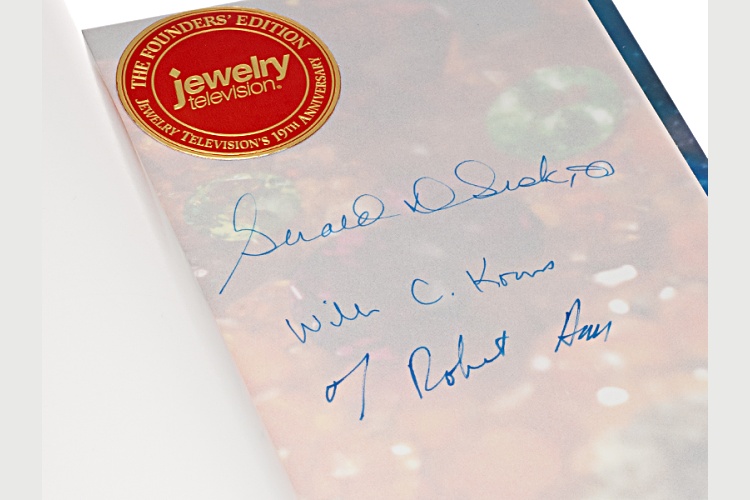 THE FOUNDERS' EDITION
jewelry
television®
JEWELRY TELEVISION'S 19TH ANNIVERSARY
Gerald D Sisk, Jr
C. Kouns
Robert Hall